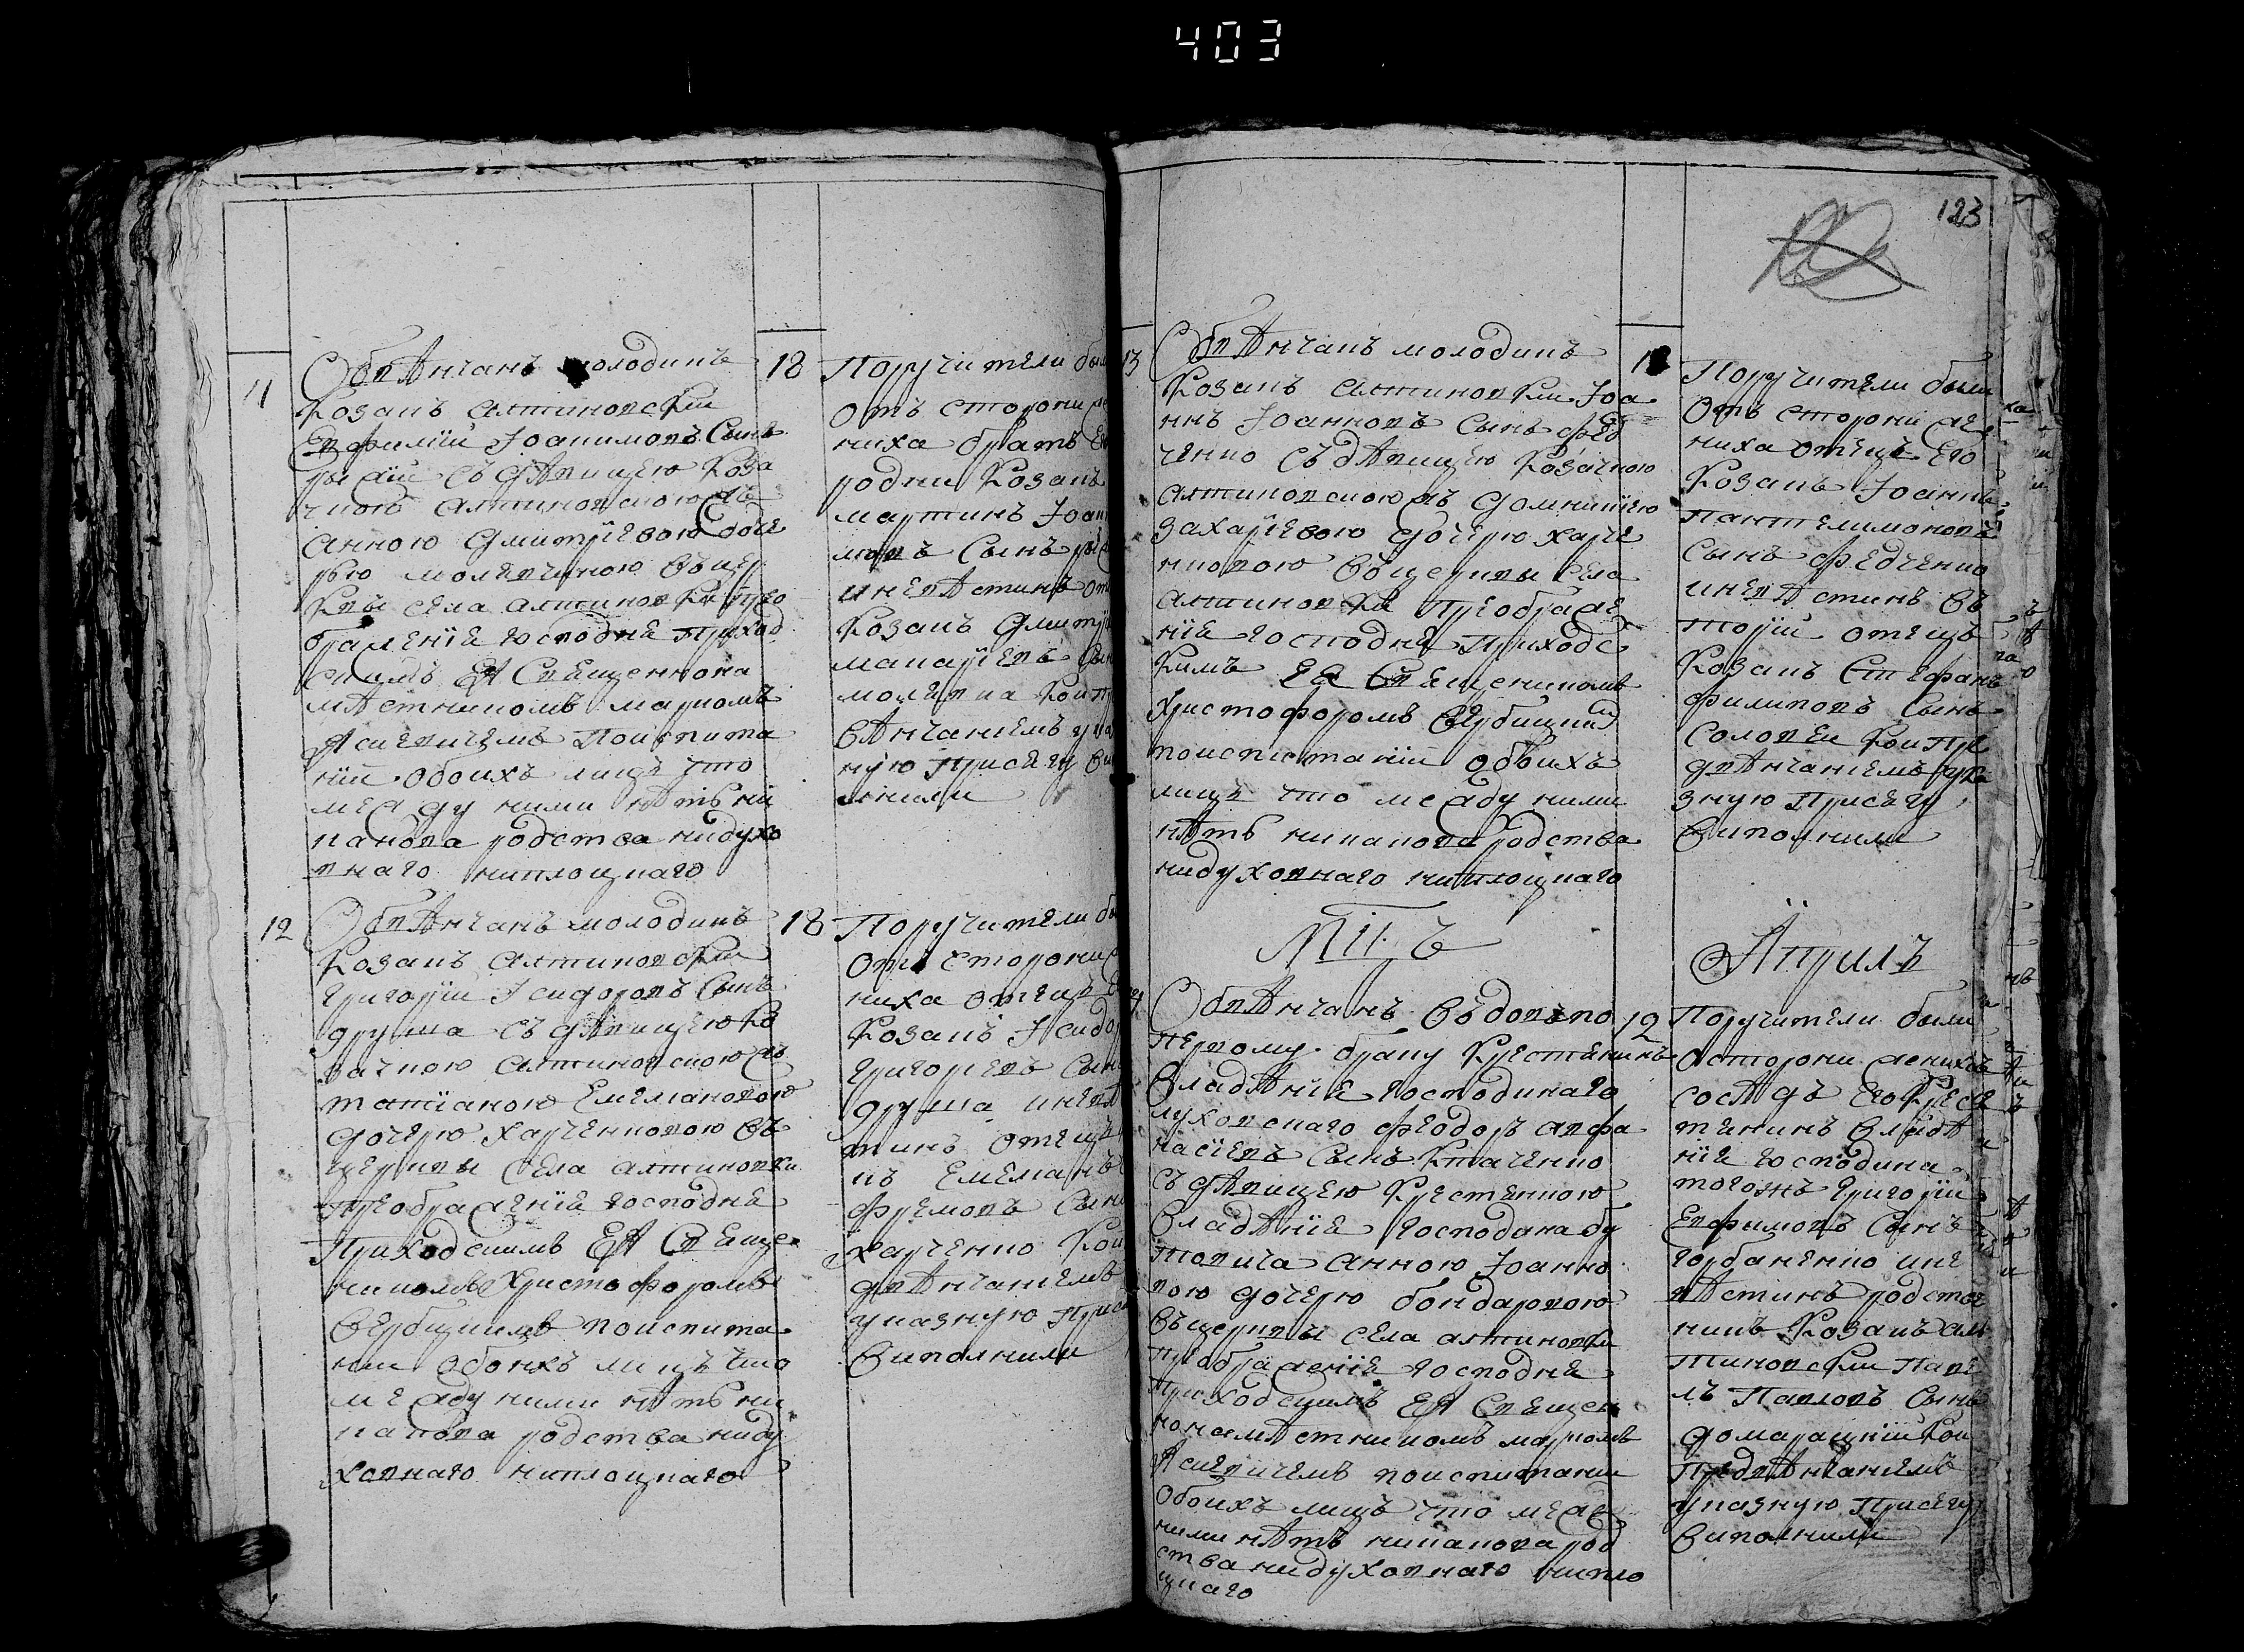 403
123
11
Обвѣнчанъ молодикъ
Козакъ алтиновский
Евфимій Іоакимовъ Сынъ
съ дѣвицею Коза
чкою алтиновскою
анною дмитріевою доче
рью въцер
Кви села алтиновки прео
браженія господня приход
скимъ Ея Священнона
мѣстникомъ маркомъ
Ясиевичемъ Поиспита
ніи обоихъ лицъ что
между ними нѣтъ ни
какова родства нидухо
внаго ниплоцкаго
18
Поручители бы
Отъ сторони же
ниха братъ
родни Козакъ
мартинъ Іоаки
мовъ Сынъ
иневѣстинъ от
Козакъ дмитр
макаріевъ Сын
Кои пр
вѣнчаніемъ ука
зную присягу ви
олнили
12
Обвѣнчанъ молодикъ
Козакъ алтиновский
григорій Ісидоровъ Сынъ
друша съ дѣвицею Ко
зачкою алтиновскою
татіаною Емелиановою
дочерю харченковою въ
церкви села алтиновки
преображенія господня
Приходскимъ Ея Священ
никомъ Христофоромъ
Вербицкимъ поиспита
нии обоихъ лицъ что
между ними нѣтъ ни
какова родства ниду
ховнаго ниплоцкаго
18
Поручители бы
Отъ сторони
ниха отецъ
Козакъ Ісидор
григориевъ Сын
друша иневѣ
стинъ отецъ
къ Емелианъ
фремовъ Сын
харченко Кои
двѣнчаніемъ
указную прися
виполнили
13
Обвѣнчанъ молодикъ
Козакъ алтиновкий Іоа
ннъ Іоанновъ Сынъ фед
ченко съ дѣвицею Козачкою
алтиновскою домникіею
захаріевою дочерю харче
нковою въцеркви села
алтиновки Преображе
нія господня Приходс
кимъ Ея Священникомъ
Христофоромъ Вербицкимъ
поиспистаніи обоихъ
лицъ что между ними
нѣтъ никакова родства
нидуховнаго ниплоцкаго
18
Поручители были
Отъ сторони же
ниха отецъ Его
Козакъ Іоаннъ
пантелимоновъ
Сынъ федченко
иневѣстинъ въ
торій отецъ
Козакъ Стефанъ
филиповъ Сынъ
соловей Кои пре
двѣнчаніемъ ука
зную Присягу
виполнили
Априлъ
Обвѣнчанъ въдовъ по
первому браку Крестянинъ
владѣнія господина
феодоръ афа
насіевъ Сынъ Ткаченко
съ дѣвицею Крестянкою
владѣнія господина бу
товича анною Іоанно
вою дочерю бондаровою
въцеркви села алтиновки
преображенія господня
приходскимъ Ея Священ
нонамѣстникомъ маркомъ
Ясиевичемъ поиспитании
обоихъ лицъ что между
ними нѣтъ никакова род
ства нидуховнаго нипло
цкаго
12
Поручители были
Осторони женихъ
сосѣдъ Его Крес
тянинъ владѣ
нія господина
тогожъ григорій
Евфимовъ Сынъ
горбаненко ине
вѣстинъ родстве
никъ Козакъ ал
тиновский паве
лъ Павловъ Сынъ
домарацкій Кои
предвѣнчаніемъ
указную присягу
виполнили